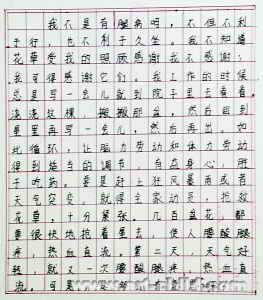 我不是有腿疾吗，不但不利
于行，也不利于久坐。我不知道
花草受我的照顾感谢我不感谢；
我可得感谢它们。我工作的时候，
总是写一会儿就到院子里去看看，
浇浇这棵，搬搬那盆，然后回到
屋里再写一会儿，然后再出。如
此循环，让脑力劳动和体力劳动
得到适当的调节，有益身心，胜
于吃药。要是赶上狂风暴雨或者
天气突变，就得全家动员，抢救
花草，十分紧张。几百盆花，都
要很快地抢着里去，使人腰酸腿
疼，热血直流。第二天，天气好
转，就又一次腰酸腿疼，热血直
流。可是